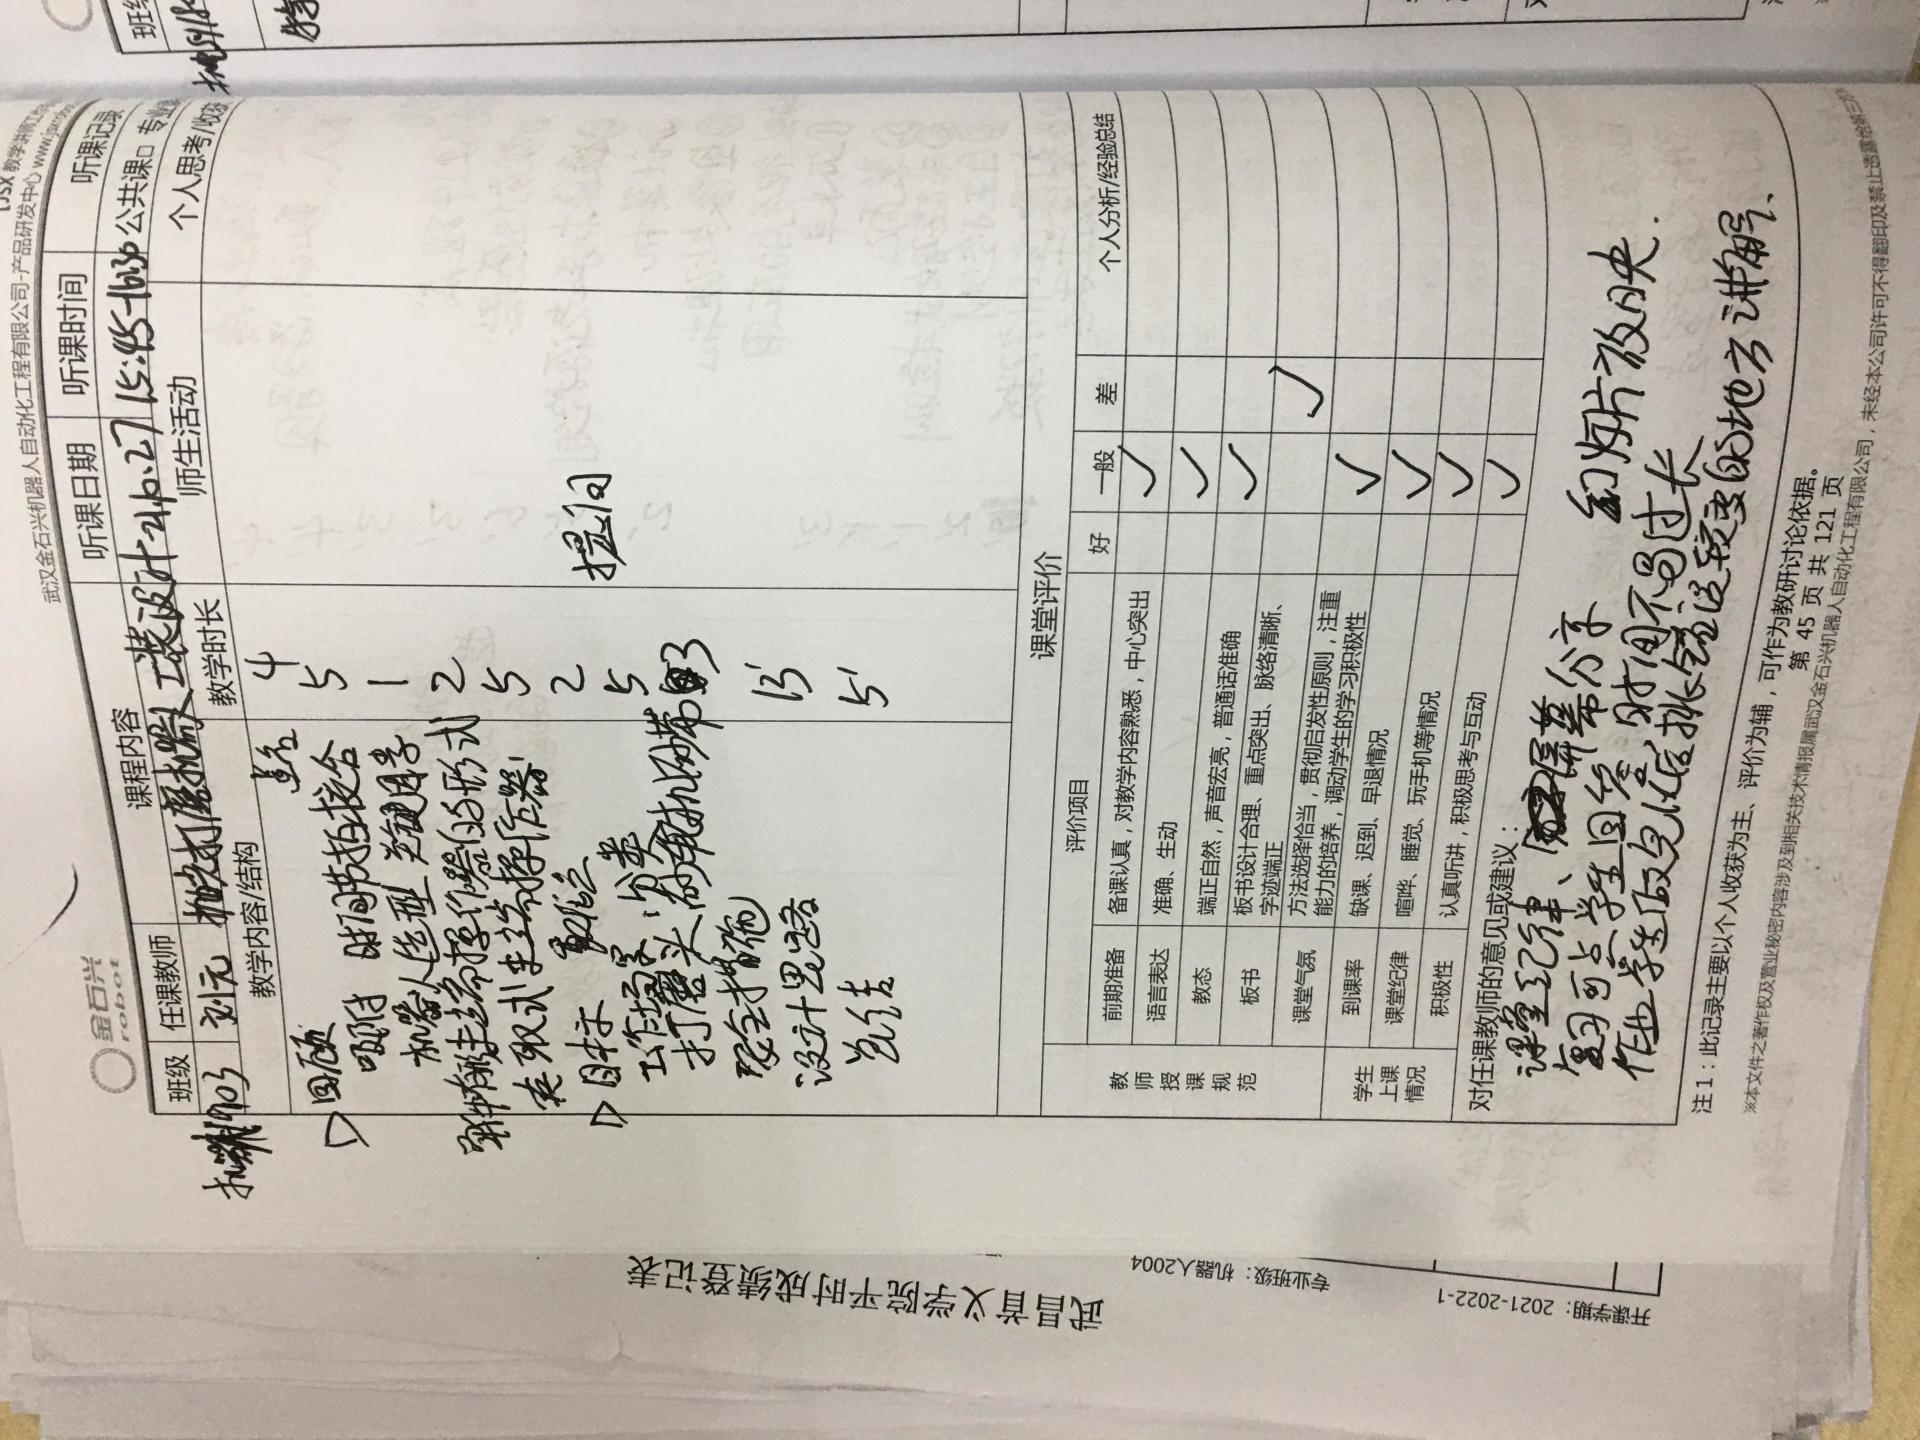 金石兴
robot
TJSX 教学讲师工
武汉金石兴机器人自动化工程有限公司-产品研发中心 www.jsxrobo
班级 任课教师 课程内容 听课日期 听课时间 听课记录
刘元 抛光打磨机器人工装设计 21.10.27 15:45-16:30 公共课□ 专业
教学内容/结构 教学时长 师生活动 个人思考/收获
点名 4
▷回顾 时间节拍接合 5
吸附 1
机器人选型 关键用导 2
末端操作器的形式 5
夹取式末端操作器 2
▷目标 5 提问
工作场景:分类
打磨头 砂带机
安全措施 15'
设计思路 5'
总结
课堂评价
评价项目 好 一般 差 个人分析/经验总结
教师授课规范
前期准备 备课认真，对教学内容熟悉，中心突出 ✓
语言表达 准确、生动 ✓
教态 端正自然，声音宏亮，普通话准确 ✓
板书 板书设计合理、重点突出、脉络清晰、
字迹端正
课堂气氛 方法选择恰当，贯彻启发性原则，注重 ✓
能力的培养，调动学生的学习积极性
学生上课情况
到课率 缺课、迟到、早退情况 ✓
课堂纪律 喧哗、睡觉、玩手机等情况 ✓
积极性 认真听讲，积极思考与互动 ✓
对任课教师的意见或建议：
课堂纪律、屏幕分享 幻灯片放映.
复习可点学生回答 时间不易过长
作业学生收完 比较重要的地方讲解、
注1：此记录主要以个人收获为主、评价为辅，可作为教研讨论依据。
第 45 页 共 121 页
※本文件之著作权及营业秘密内容涉及到相关技术情报属武汉金石兴机器人自动化工程有限公司，未经本公司许可不得翻印及禁止透露给第三方
武昌首义学院平时成绩登记表
开课学期：2021-2022-1
专业班级：机器人2004